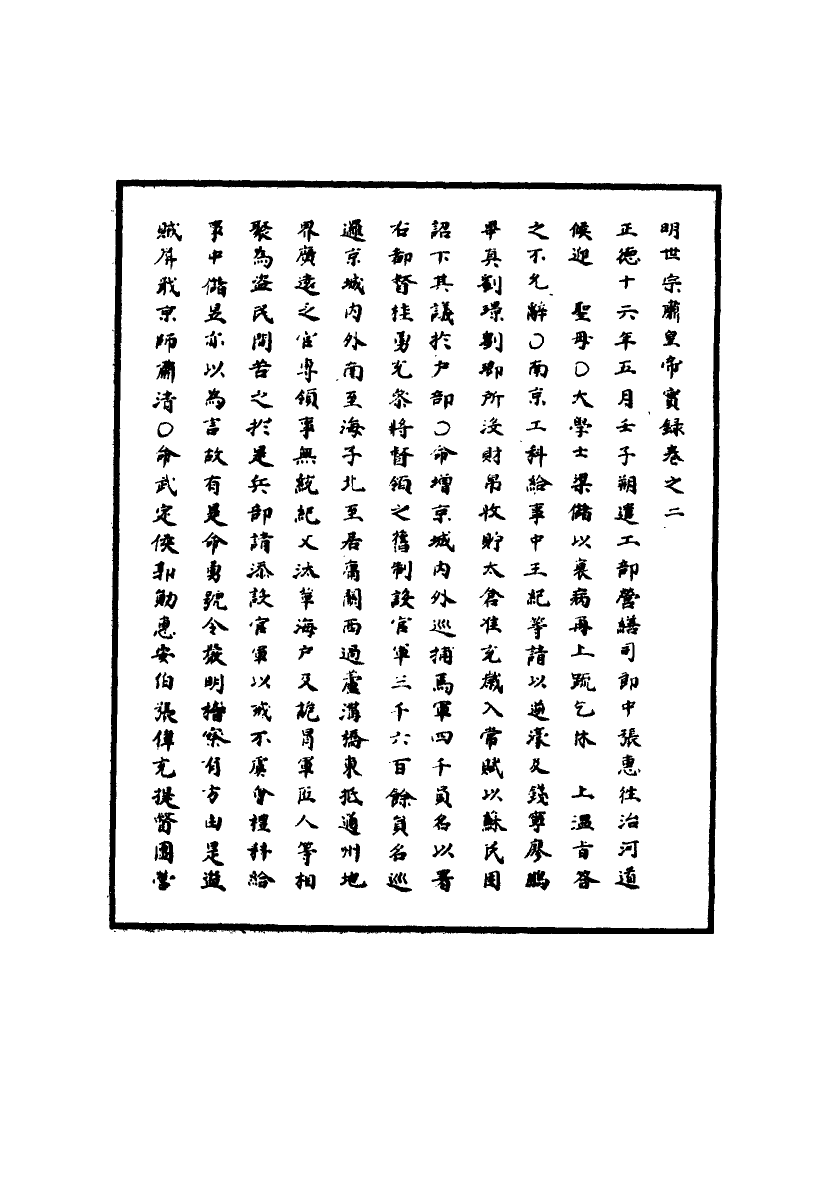 明世宗肅皇帝實録卷之二
正德十六年五月壬子朔遣工部營繕司郎中張惠往治河道
候迎　聖母○大學士梁儲以衰病再上疏乞休　上温旨答
之不允辭○南京工科給事中王紀等請以逆濠及錢寧廖鵬
畢真劉璟劉瑯所沒財帛收貯太倉准充歲入常賦以蘇民困
詔下其議於户部○命增京城内外巡捕馬軍四千員名以署
右都督桂勇充叅將督領之舊制設官軍三千六百餘員名巡
邏京城内外南至海子北至居庸關西過蘆溝橋東抵通州地
界廣遠之官專領事無統紀乂汰革海户及詭冒軍匠人等相
聚為盗民間苦之於是兵部請添設官軍以戒不虞會禮科給
事中儲昱亦以為言故有是命勇號令嚴明擔察有方由是盜
賊屏戢京師肅清○命武定侯郭勛惠安伯張偉充提督團營